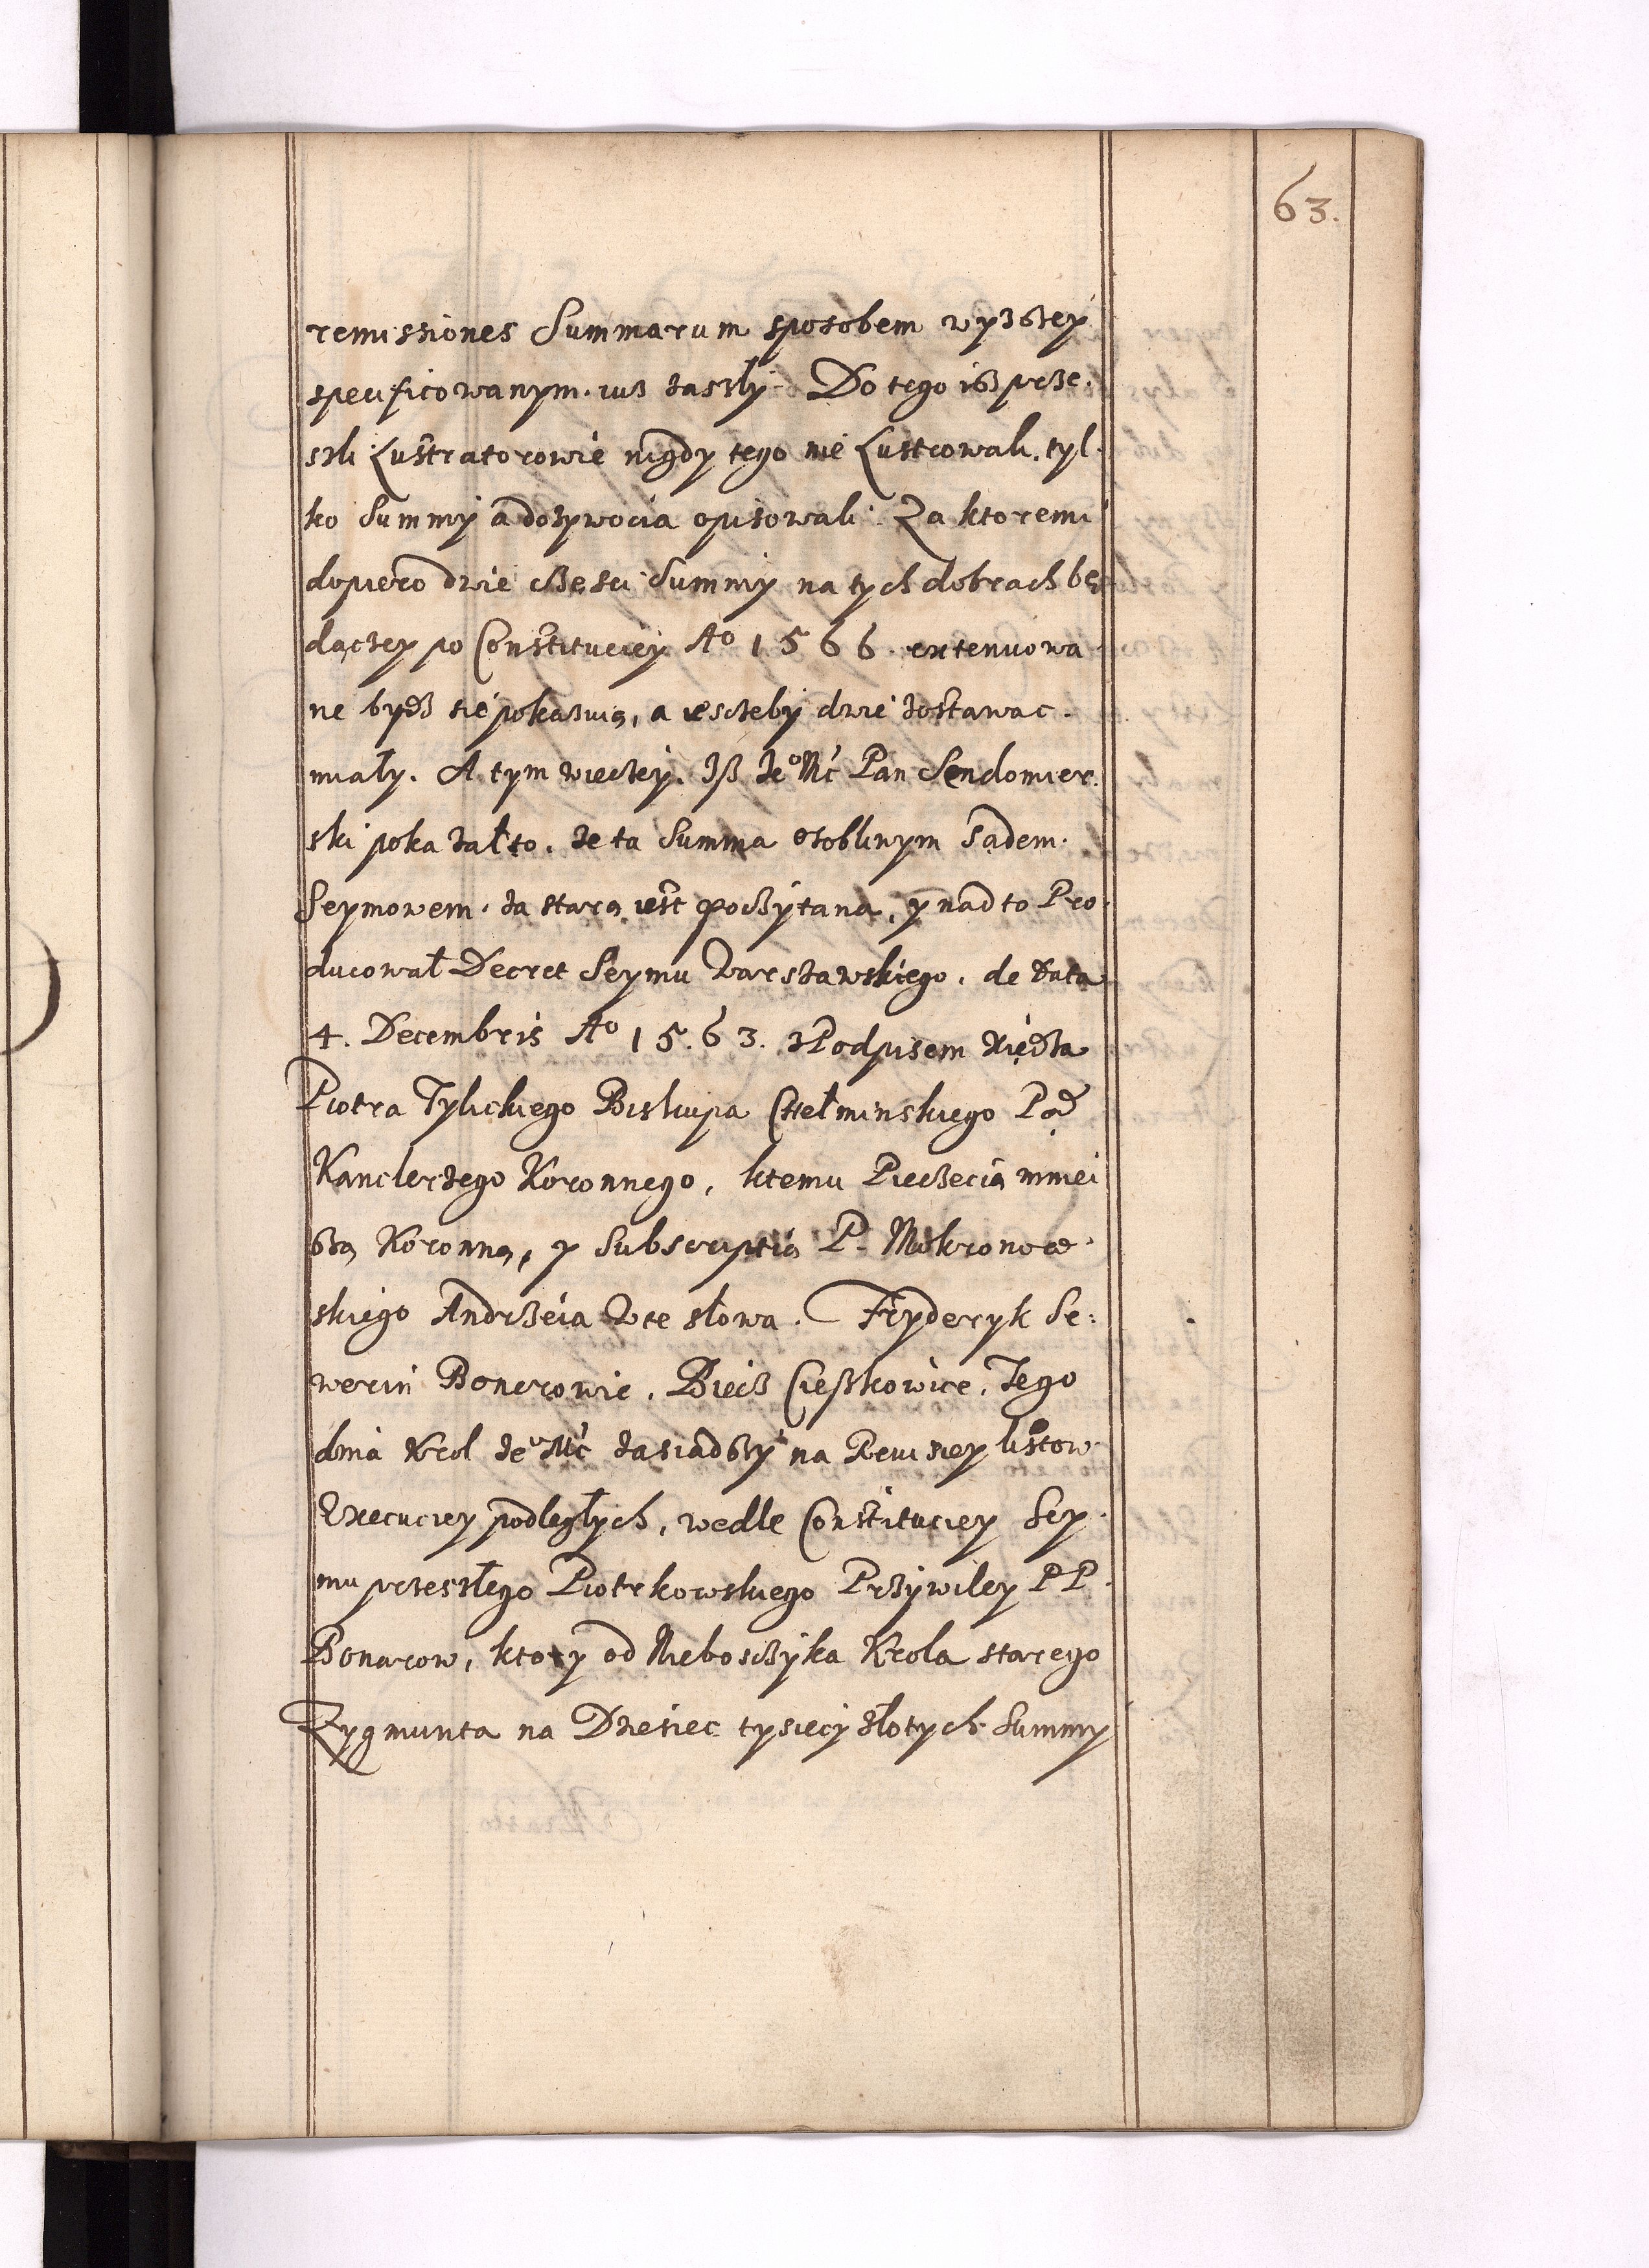 63.
remissiones Summarum sposobem wyzszey
specificowanym. iuß zaszły. Do tego iß prze.
szli Lustratorowie nigdy tego nie Lustrowali. tyl.
ko Summy a dozywocia opisowali. Za ktoremi
dopiero dwie częsci Summy na tych dobrach bę
dączey po Constituciey Aº 1566. extenuowa
ne bydz się pokazuią, a ieszczeby dwie zostawac.
miały. A tym wieczey. Iß Ieº Mć Pan Sendomier.
ski pokazał to. ze ta Summa osobliwym Sądem.
Seymowem. za starą iest poczytana, y nadto Pro.
ducował Decret Seymu Warszawskiego. de data
4. Decembris Aº 15.63. z Podpisem xiędza
Piotra Tylickiego Biskupa Chełminskiego Pod
Kanclerzego Koronnego, ktemu Pieczecią mniei
szą Koronną, y Subscriptią P. Mokronow.
skiego Andrzeia Wte słowa. Fryderyk Se:
werin Bonerowie. Biecz Cieszkowice. Tego
dnia Krol Ieº Mć zasiadszy na Rewisiey listow.
Execuciey podległych, wedle Constituciey Sey.
mu przeszłego Piotrkowskiego Przywiley PP.
Bonarow, ktory od Nieboszczyka Krola starego
Zygmunta na Dziesiec tysiecy złotych Summy